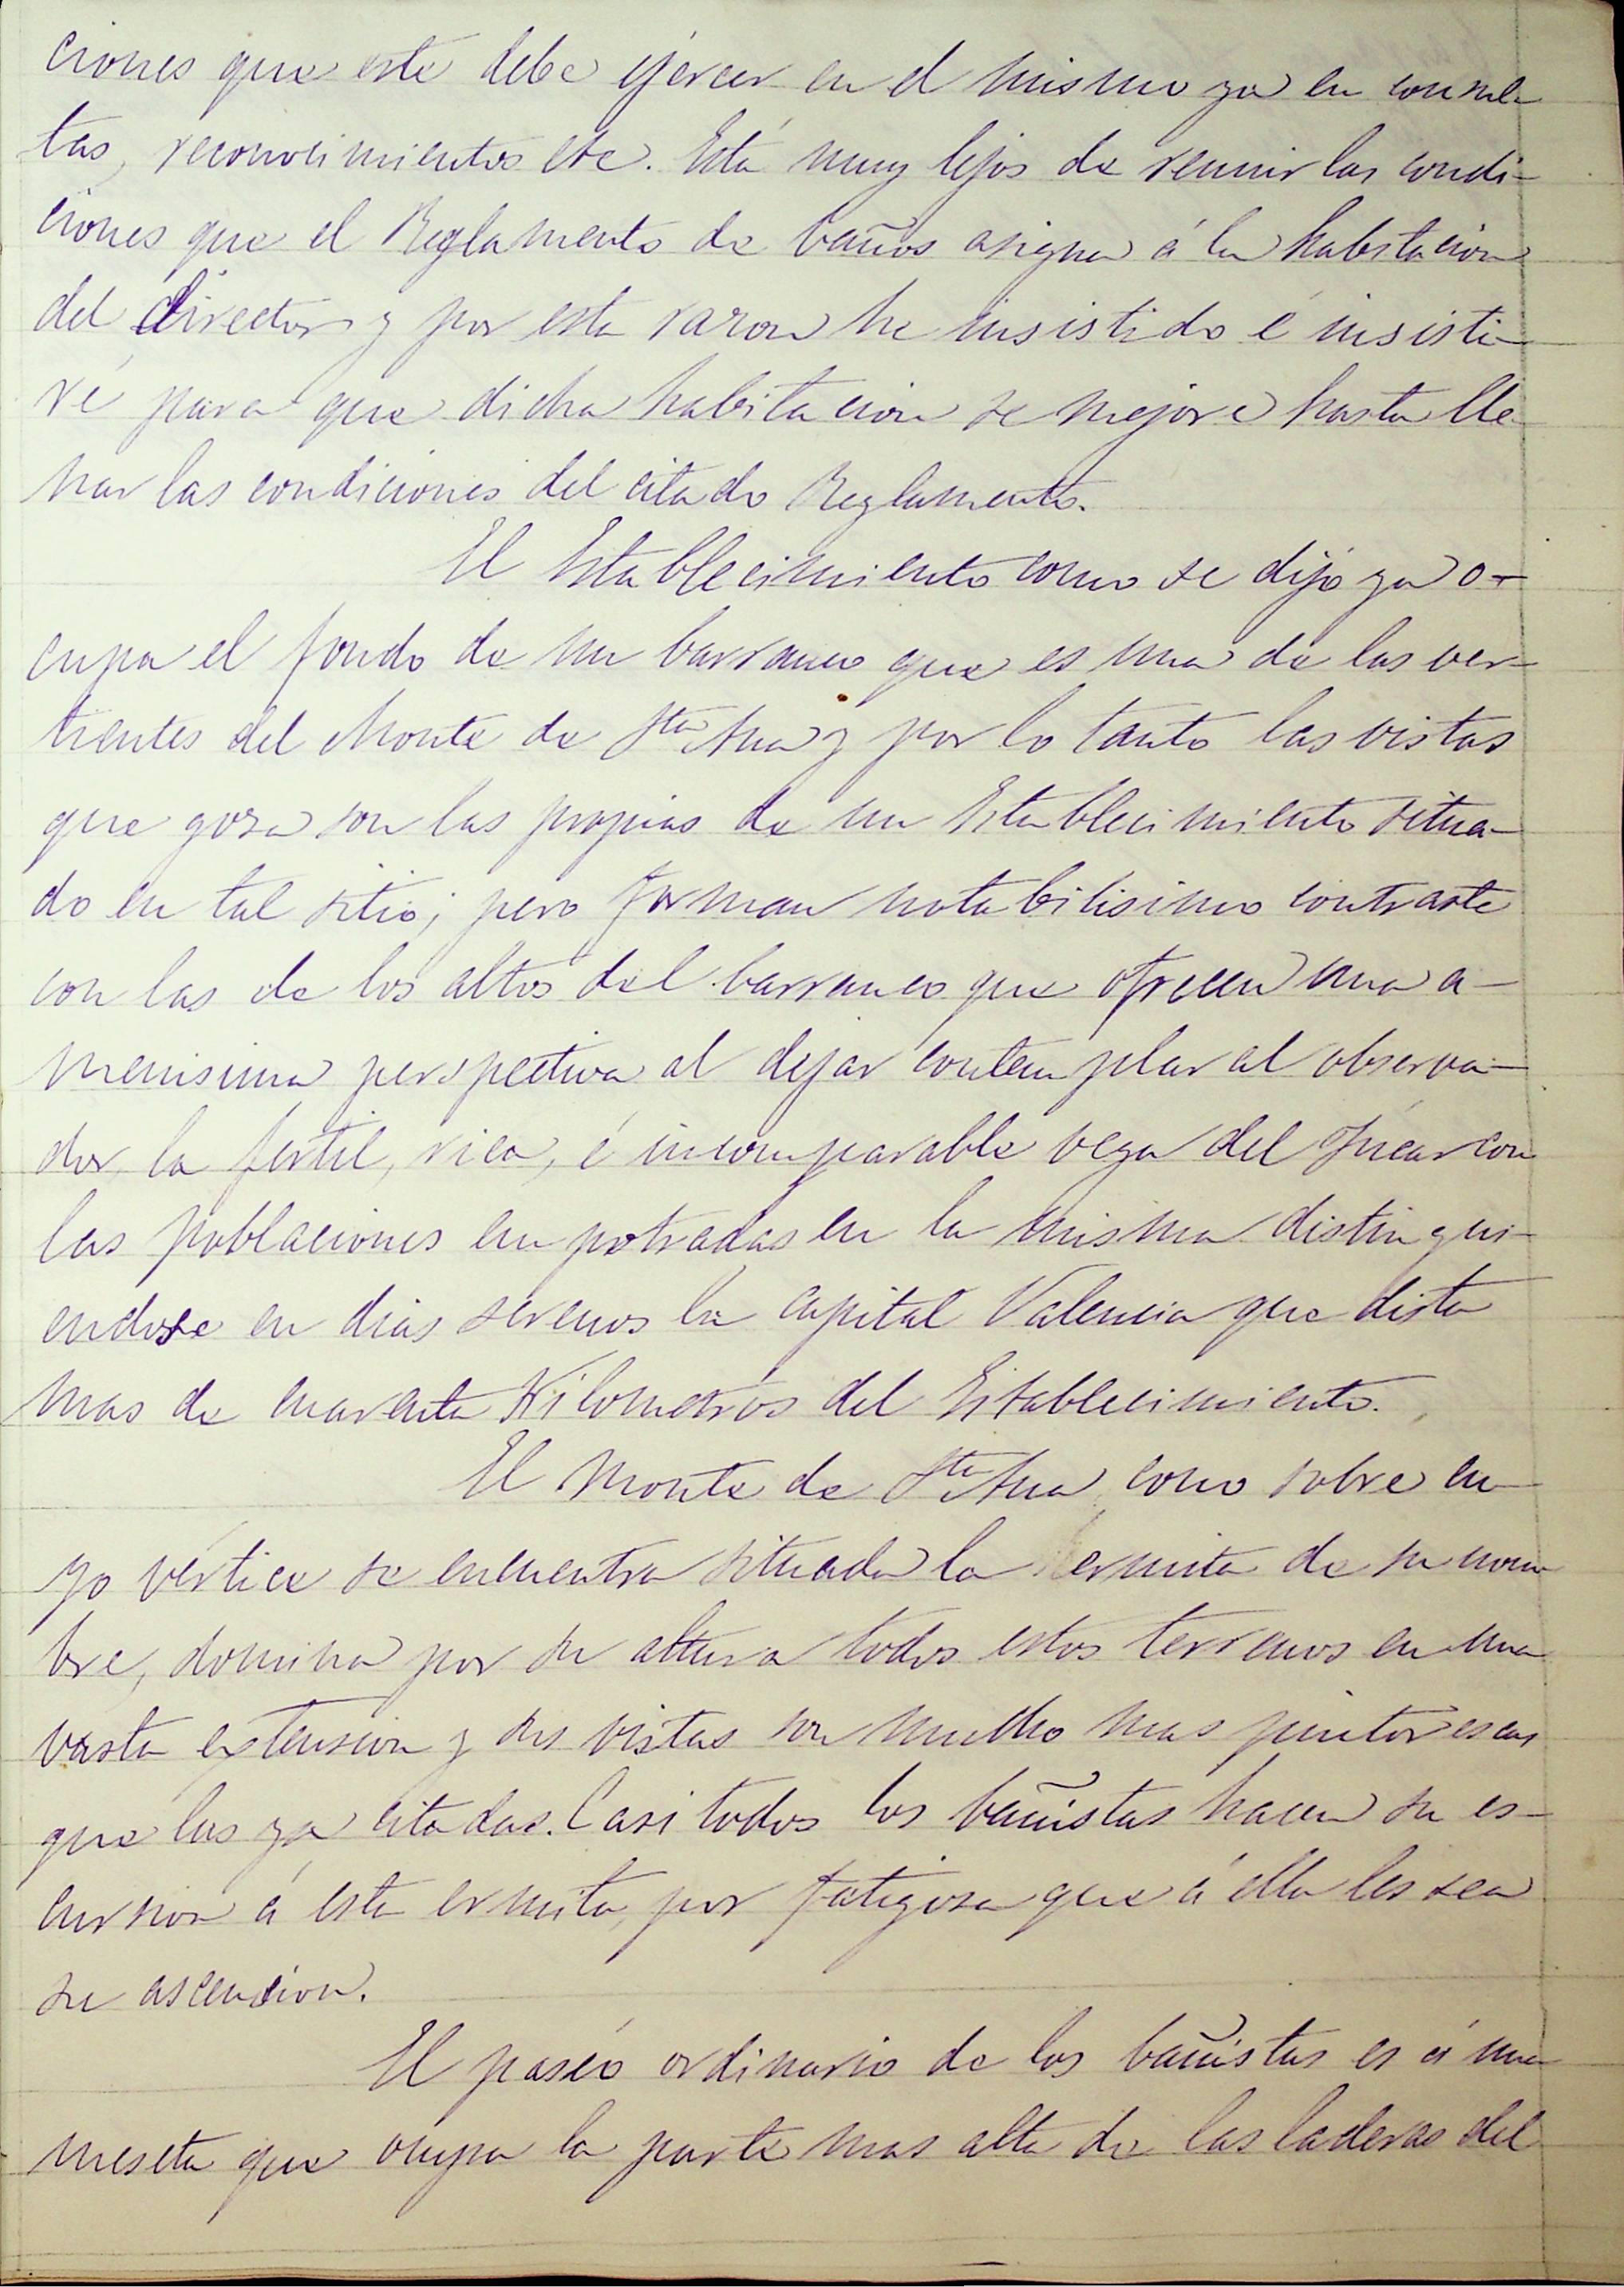 ciones que este debe ejercer en el mismo ya en consul-
tas, reconocimientos etc. Está muy lejos de reunir las condi-
ciones que el Reglamento de baños asigna á la habitacion
del director y por esta razon he insistido é insisti-
ré para que dicha habitacion se mejore hasta lle-
nar las condiciones del citado Reglamento.
El Establecimiento como se dijo ya o-
cupa el fondo de un barranco que es una de las ver-
tientes del Monte de Sta Ana y por lo tanto las vistas
que goza son las propias de un Establecimiento situa-
do en tal sitio; pero forman notabilisimo contraste
con las de los altos del barranco que ofrecen una a-
menisima perspectiva al dejar contemplar al observa-
dor la fertil, rica, é incomparable vega del Júcar con
las poblaciones empotradas en la misma distingui-
endose en dias serenos la capital Valencia que dista
mas de cuarenta Kilometros del Establecimiento.
El Monte de Sta Ana, como sobre cu-
yo vértice se encuentra situada la ermita de su nom-
bre, domina por su altura todos estos terrenos en una
vasta extension y sus vistas son mucho mas pintorescas
que las ya citadas. Casi todos los bañistas hacen su es-
cursion á esta ermita, por fatigosa que á ella les sea
su ascension.
El paseo ordinario de los bañistas es á una
meseta que ocupa la parte mas alta de las laderas del